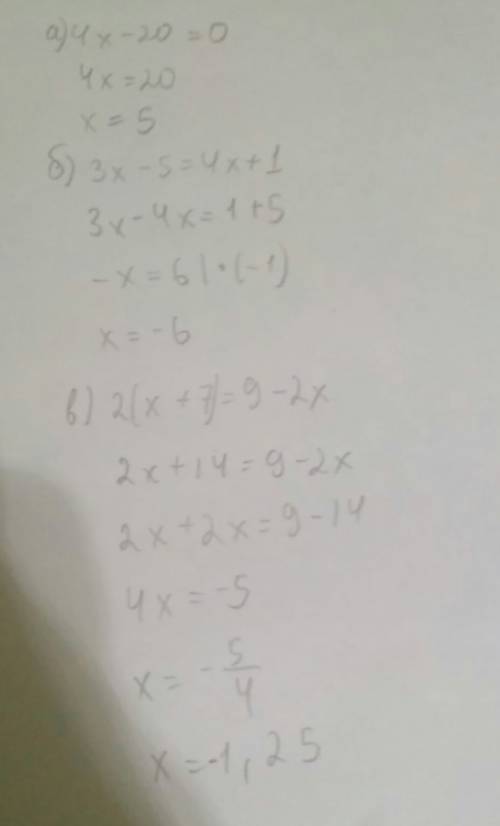 а) 4x-20=0
4x=20
x=5
б) 3x-5=4x+1
3x-4x=1+5
-x=6 | ·(-1)
x=-6
в) 2(x+7)=9-2x
2x+14=9-2x
2x+2x=9-14
4x=-5
x=-5/4
x=-1,25